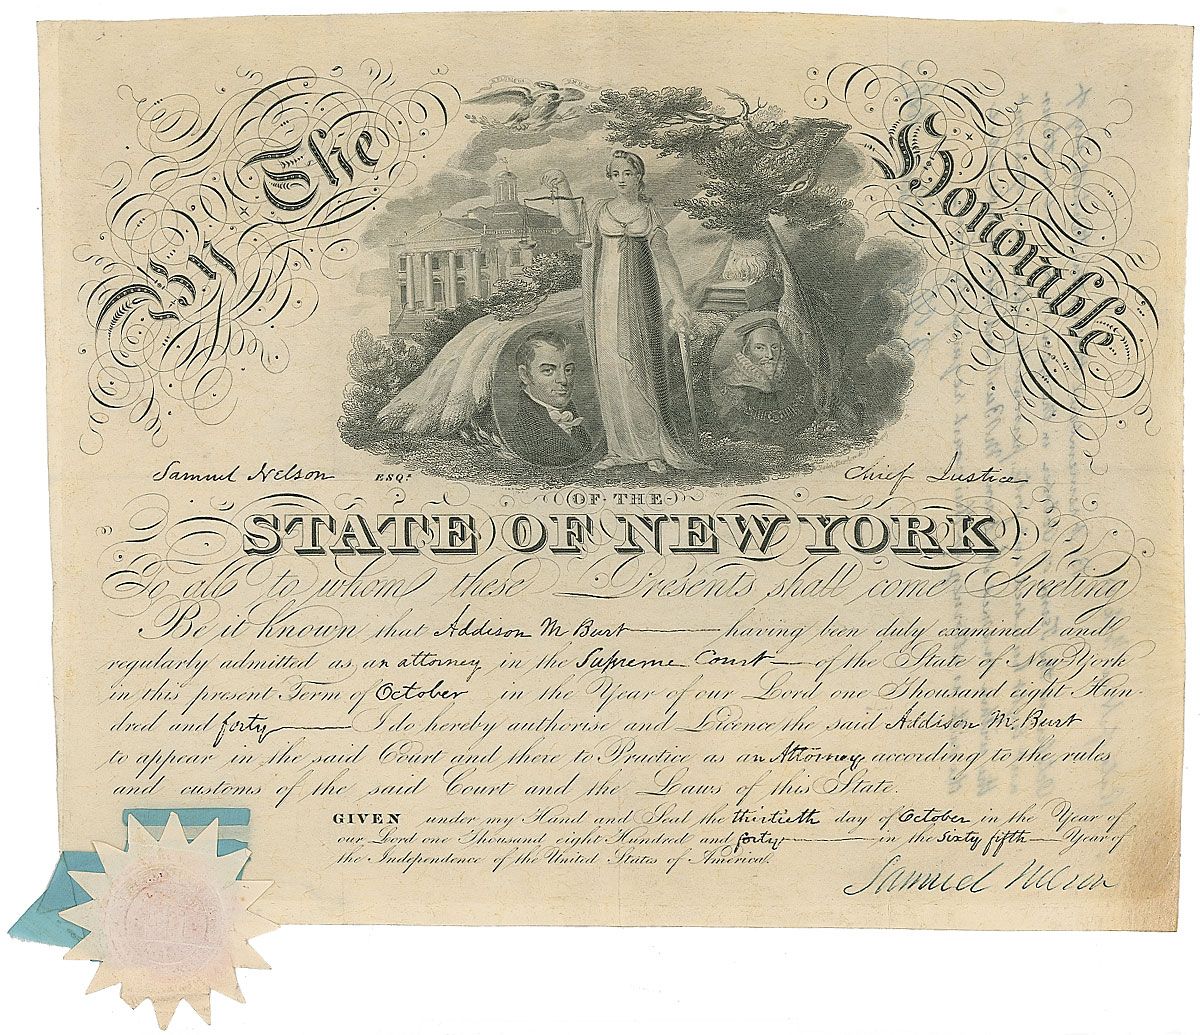 By The Honorable
E PLURIBUS UNUM
Samuel Nelson ESQr. Chief Justice
OF THE
STATE OF NEW YORK
To all to whom these Presents shall come Greeting
Be it Known that Addison M Burt having been duly examined and
regularly admitted as an attorney in the Supreme Court of the State of New York
in this present Term of October in the Year of our Lord one Thousand eight Hun-
dred and forty I do hereby authorise and Licence the said Addison M Burt
to appear in the said Court and there to Practice as an Attorney according to the rules
and customs of the said Court and the Laws of this State.
GIVEN under my Hand and Seal the thirtieth day of October in the Year of
our Lord one Thousand eight Hundred and forty in the Sixty fifth Year of
the Independence of the United States of America.
Samuel Nelson